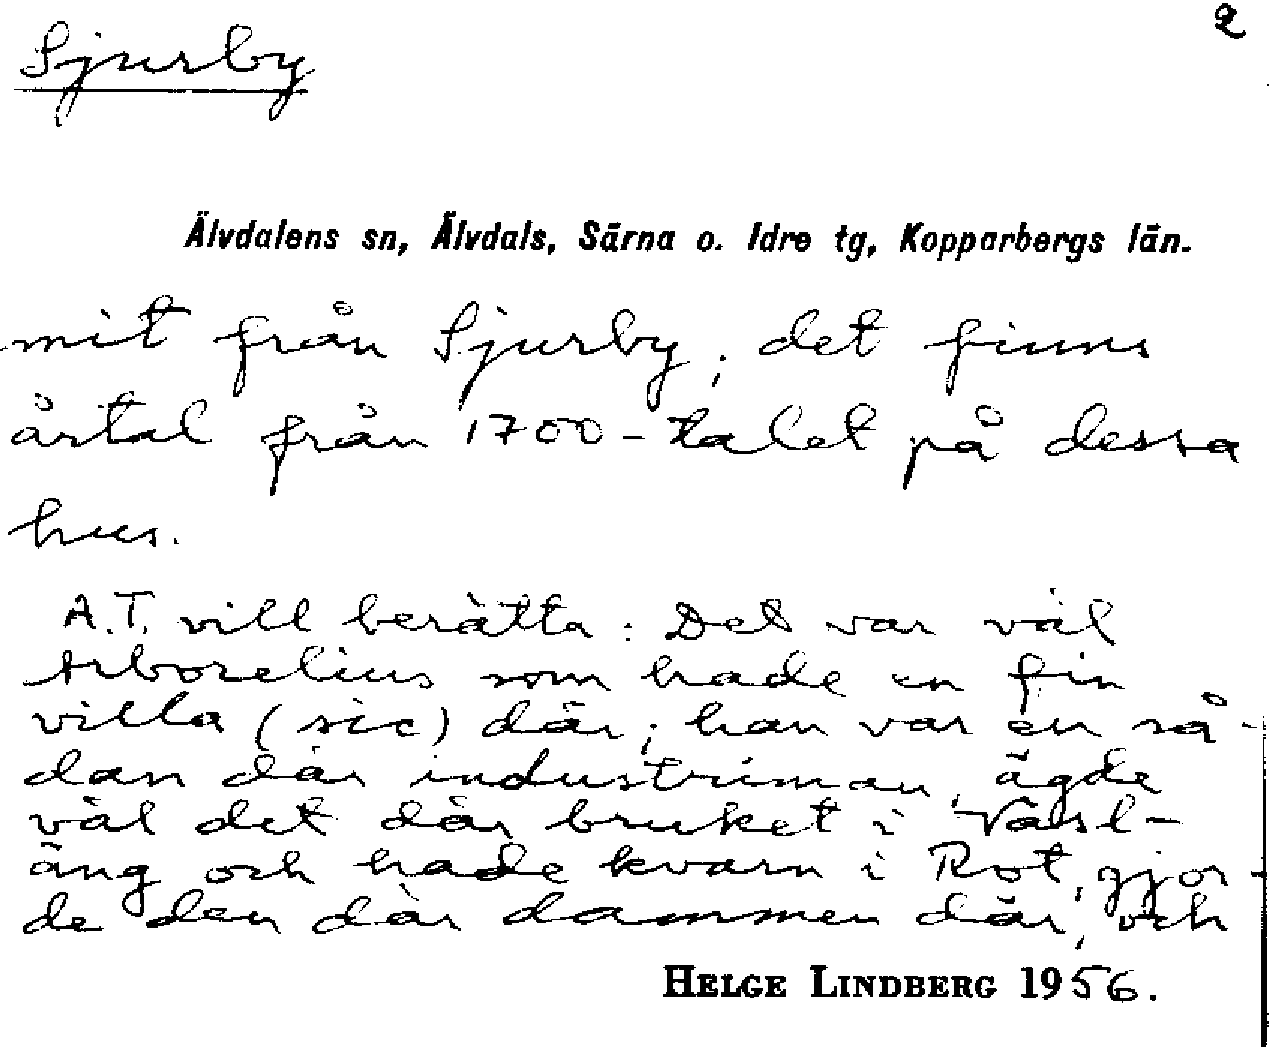 Sjurby
2
Älvdalens sn, Älvdals, Särna o. Idre tg, Kopparbergs län.
mit från Sjurby; det finns
årtal från 1700-talet på dessa
hus.
A.T. vill berätta: Det var väl
Arborelius som hade en fin
villa (sic) där; han var en så-
dan där industriman, ägde
väl det där bruket i Väsl-
äng och hade kvarn i Rot, gjor-
de den där dammen där, och
HELGE LINDBERG 1956.